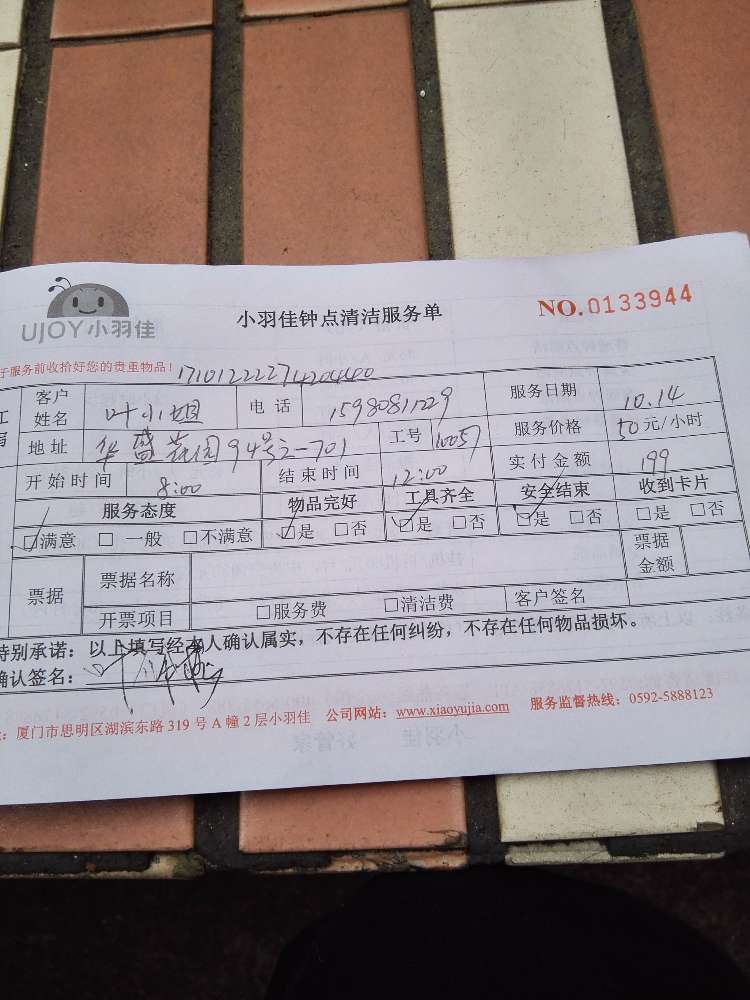 UJOY小羽佳
小羽佳钟点清洁服务单
NO.0133944
于服务前收拾好您的贵重物品！
客户姓名 叶小姐 电话 服务日期 10.14
地址 华盛花园94号2-701 工号 10057 服务价格 50元/小时
开始时间 8:00 结束时间 12:00 实付金额 199
服务态度 物品完好 工具齐全 安全结束 收到卡片
□满意 □一般 □不满意 □是 □否 □是 □否 □是 □否 □是 □否
票据 票据名称 票据金额
开票项目 □服务费 □清洁费 客户签名
特别承诺：以上填写经本人确认属实，不存在任何纠纷，不存在任何物品损坏。
确认签名：
厦门市思明区湖滨东路319号A幢2层小羽佳 公司网站：www.xiaoyujia.com 服务监督热线：0592-5888123